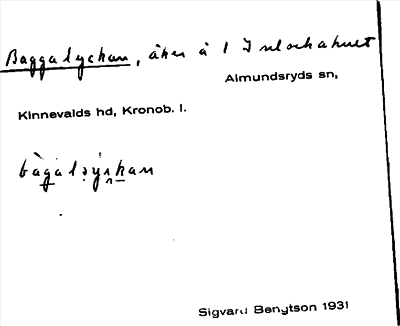 Baggalyckan, åker å 1 Inlockahult
Almundsryds sn,
Kinnevalds hd, Kronob. l.
Sigvard Bengtson 1931